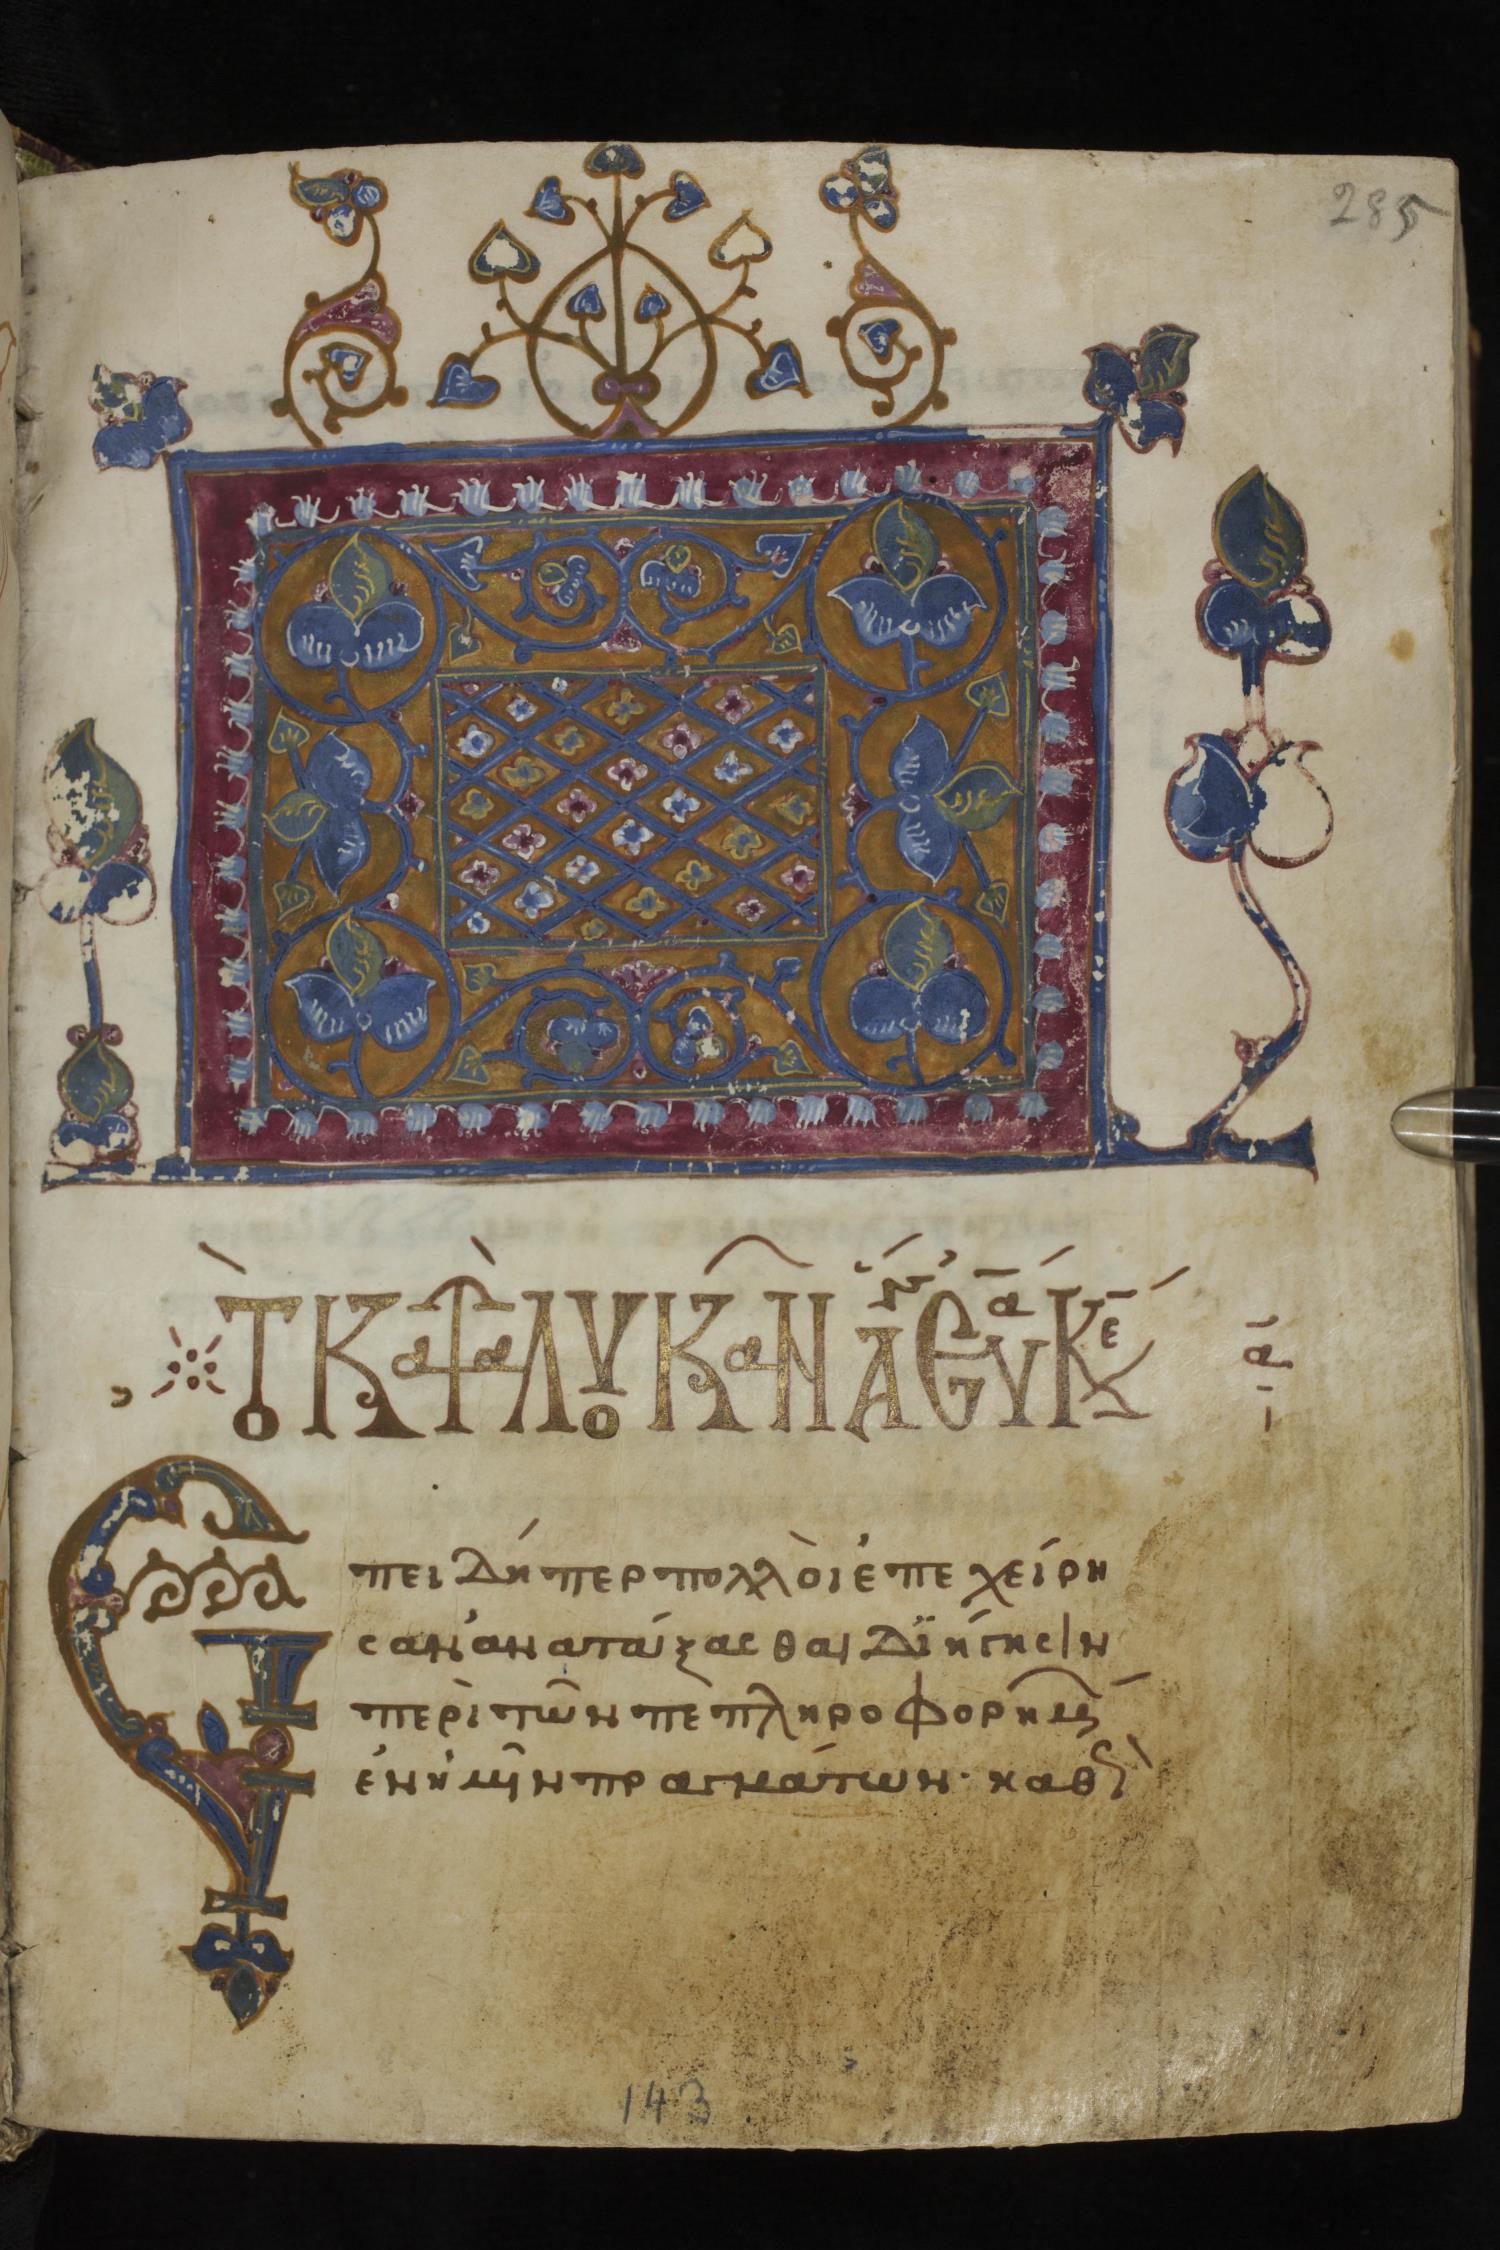 285
Τὸ Κατὰ Λουκᾶν ἅγιον Εὐα κε
α
Ἐπειδήπερ πολλοὶ ἐπεχείρη
σαν ἀνατάξασθαι διήγησιν
περὶ τῶν πεπληροφορημ
ἐν ἡμῖν πραγμάτων· καθ
143